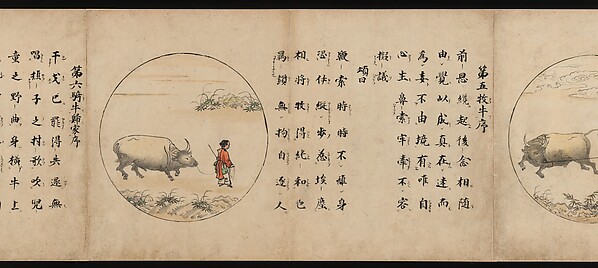 第五牧牛序
前思纔起後念相隨
由覺以成真在迷而
為妄不由境有唯自
心生鼻索牢牽不容
擬議
頌曰
鞭索時時不離身
恐伊縱步惹埃塵
相將牧得純和也
羈鎖無拘自逐人
第六騎牛歸家序
干戈已罷得失還無
唱樵子之村歌吹兒
童之野曲身橫牛上